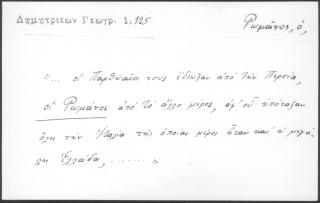 Δημητριέων Γεωγρ. 1.125
Ρωμᾶνος, ὁ,
"... οἱ Παρθυαῖοι τοὺς ἔδιωξαν ἀπὸ τὴν Περσία,
οἱ Ρωμᾶνοι ἀπὸ τὸ ἄλλο μέρος, ἀφ' οὗ ὑπόταξαν
ὅλη τὴν Ἰταλία τῆς ὁποίας μέρος ἦταν καὶ ἡ μεγά-
λη Ἑλλάδα, ........ "